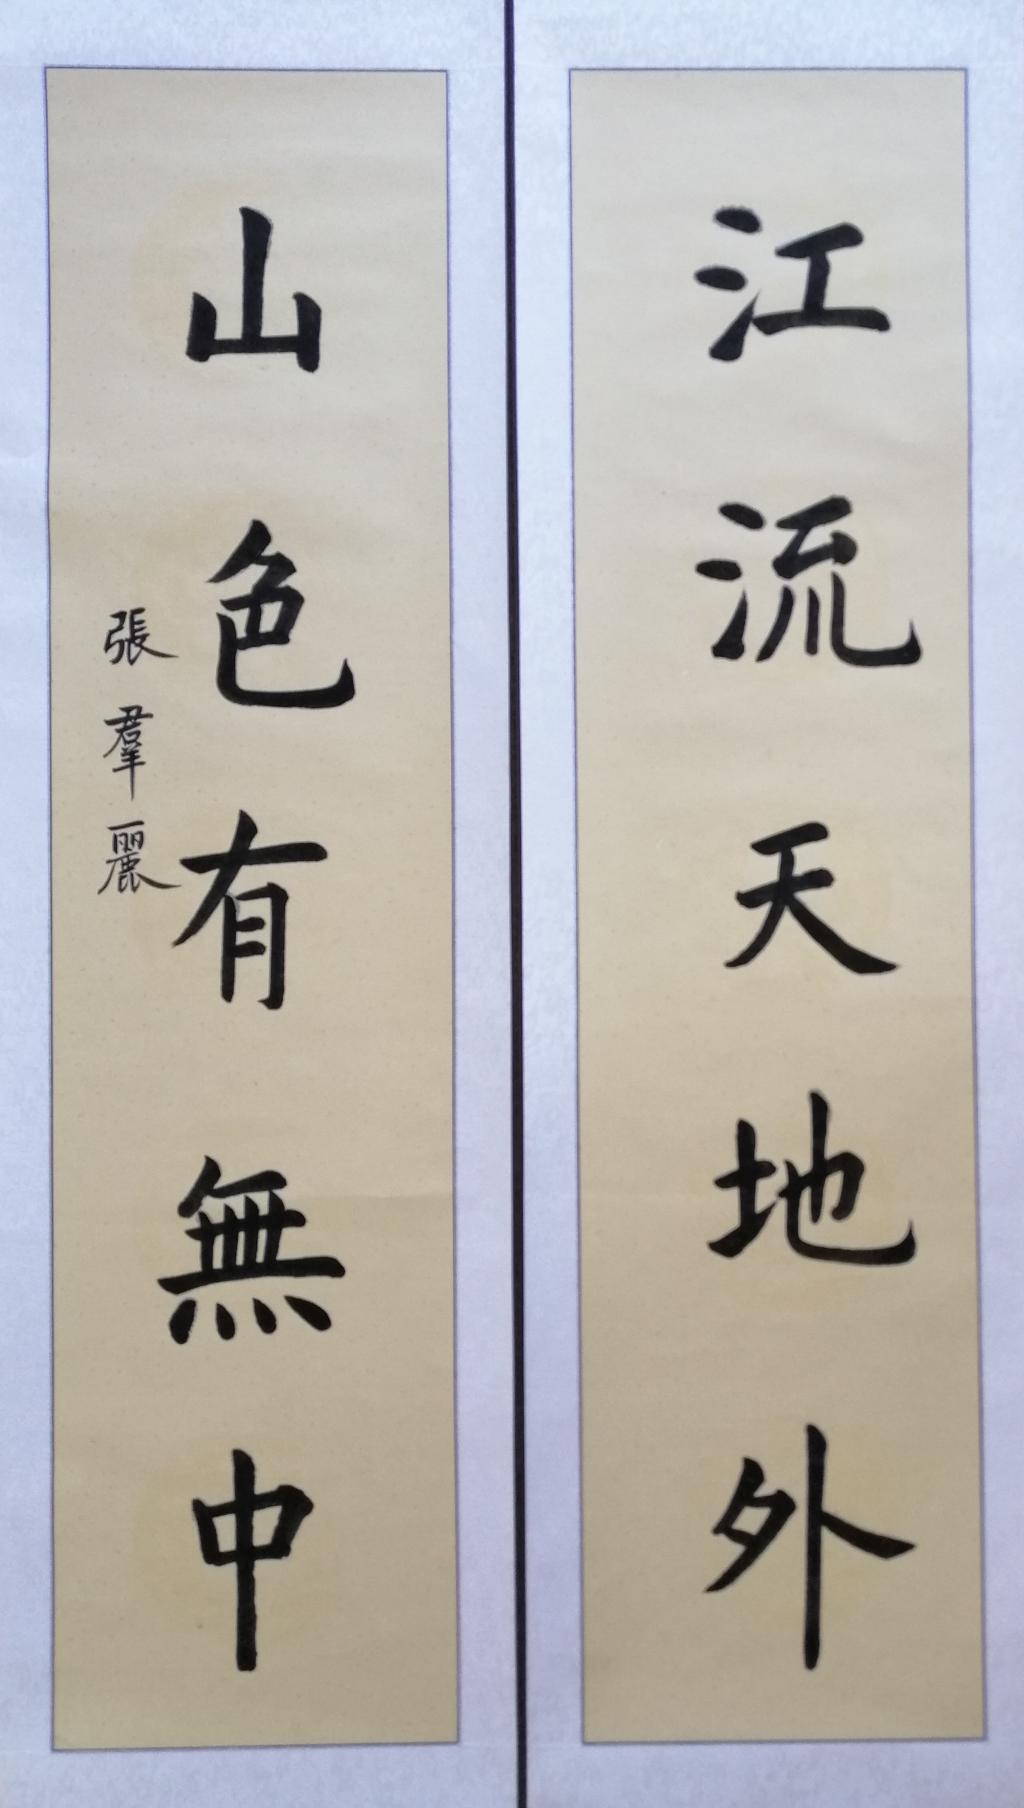 江流天地外
山色有無中
張羣麗